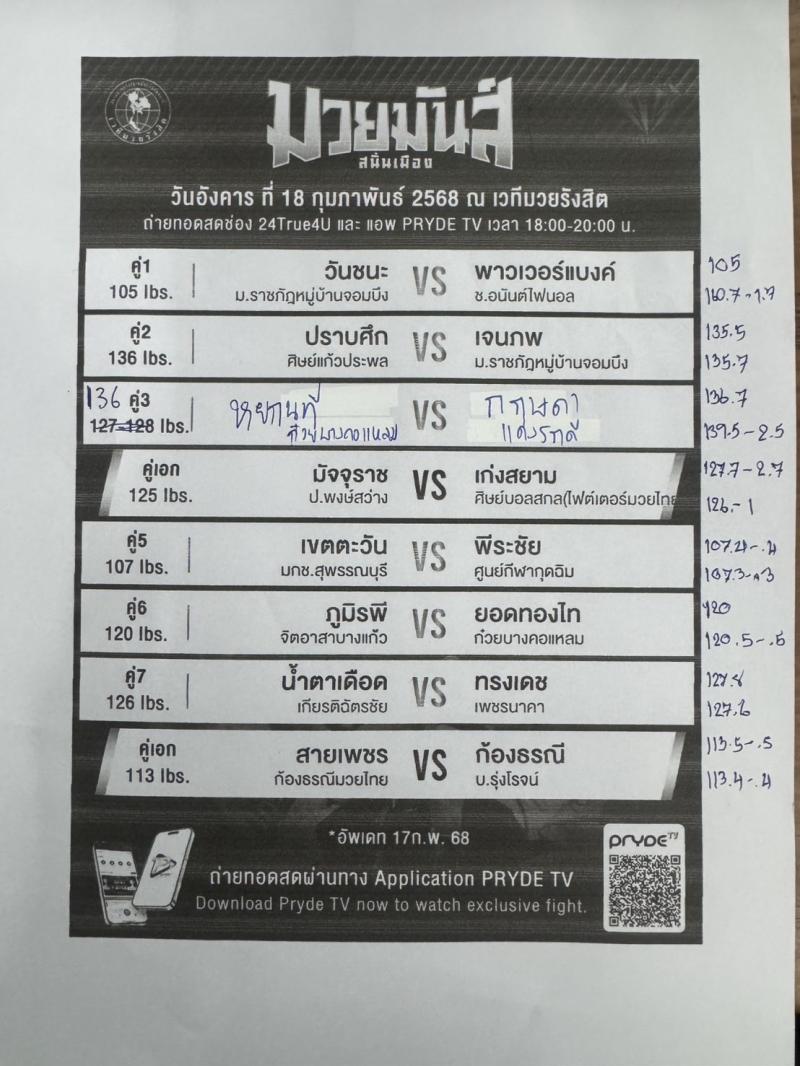 มวยมันส์
สนั่นเมือง
วันอังคาร ที่ 18 กุมภาพันธ์ 2568 ณ เวทีมวยรังสิต
ถ่ายทอดสดช่อง 24True4U และ แอพ PRYDE TV เวลา 18:00-20:00 น.
คู่1 วันชนะ VS พาวเวอร์แบงค์ 105
105 lbs. ม.ราชภัฏหมู่บ้านจอมบึง ช.อนันต์ไฟนอล
คู่2 ปราบศึก VS เจนภพ 135.5
136 lbs. ศิษย์แก้วประพล ม.ราชภัฏหมู่บ้านจอมบึง 135.7
136 คู่3 หยกนที VS กฤษดา 136.7
127-128 lbs. ก๋วยบางคอแหลม 139.5-2.5
คู่เอก มัจจุราช VS เก่งสยาม 127.7-2.7
125 lbs. ป.พงษ์สว่าง ศิษย์บอลสกล(ไฟต์เตอร์มวยไทย 126.-1
คู่5 เขตตะวัน VS พีระชัย 107.4-.4
107 lbs. มกช.สุพรรณบุรี ศูนย์กีฬากุดฉิม 107.3-.3
คู่6 ภูมิรพี VS ยอดทองไท 120
120 lbs. จิตอาสาบางแก้ว ก๋วยบางคอแหลม 120.5-.5
คู่7 น้ำตาเดือด VS ทรงเดช
126 lbs. เกียรติฉัตรชัย เพชรนาคา 127.6
คู่เอก สายเพชร VS ก้องธรณี 113.5-.5
113 lbs. ก้องธรณีมวยไทย บ.รุ่งโรจน์ 113.4-.4
*อัพเดท 17ก.พ. 68
PRYDE TV
ถ่ายทอดสดผ่านทาง Application PRYDE TV
Download Pryde TV now to watch exclusive fight.